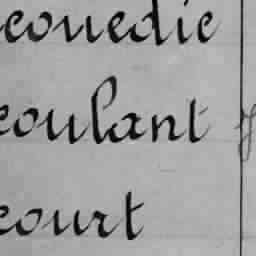 comedie
coulant
court